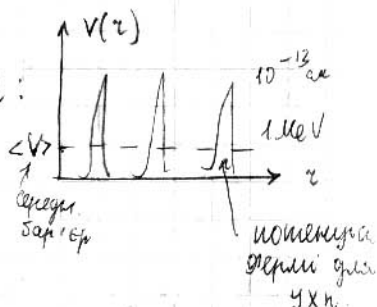 V(r)
10⁻¹³ см
1 MeV
<V>
r
середн.
бар'єр
потенціал
Фермі для
УХН